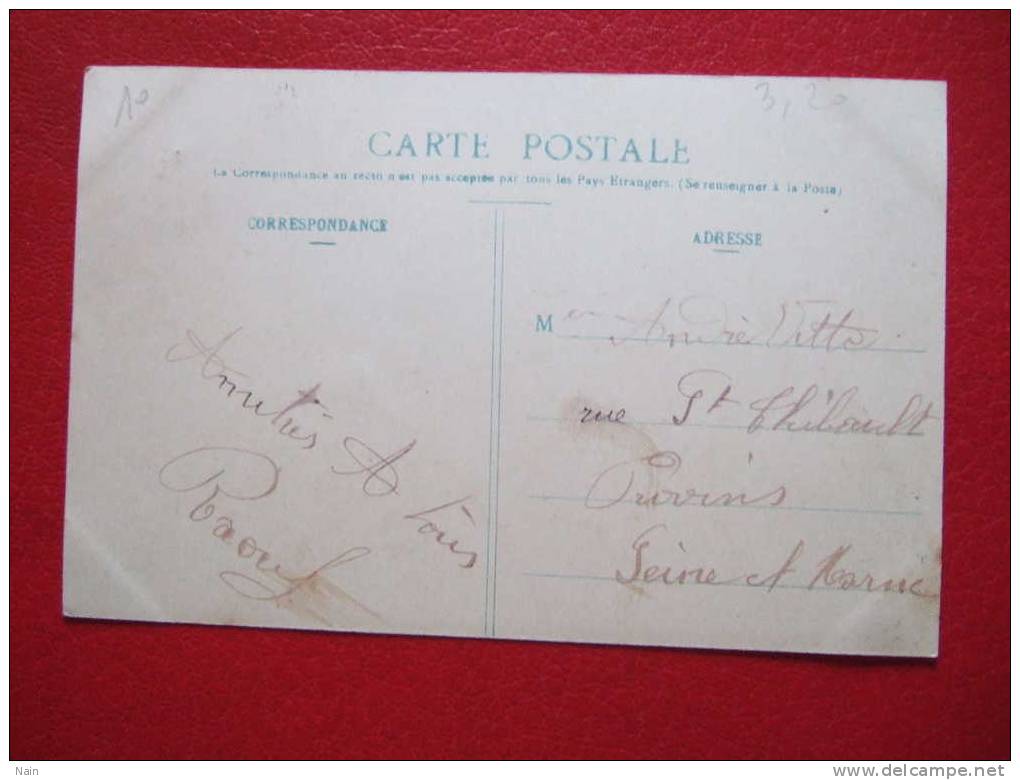 3,20
CARTE POSTALE
La Correspondance au recto n'est pas acceptée par tous les Pays Etrangers. (Se renseigner à la Poste)
CORRESPONDANCE
ADRESSE
Amitiés A Tous
Raoul
M André Vitto
rue St Thibault
Provins
Seine et Marne
Nain
www.delcampe.net